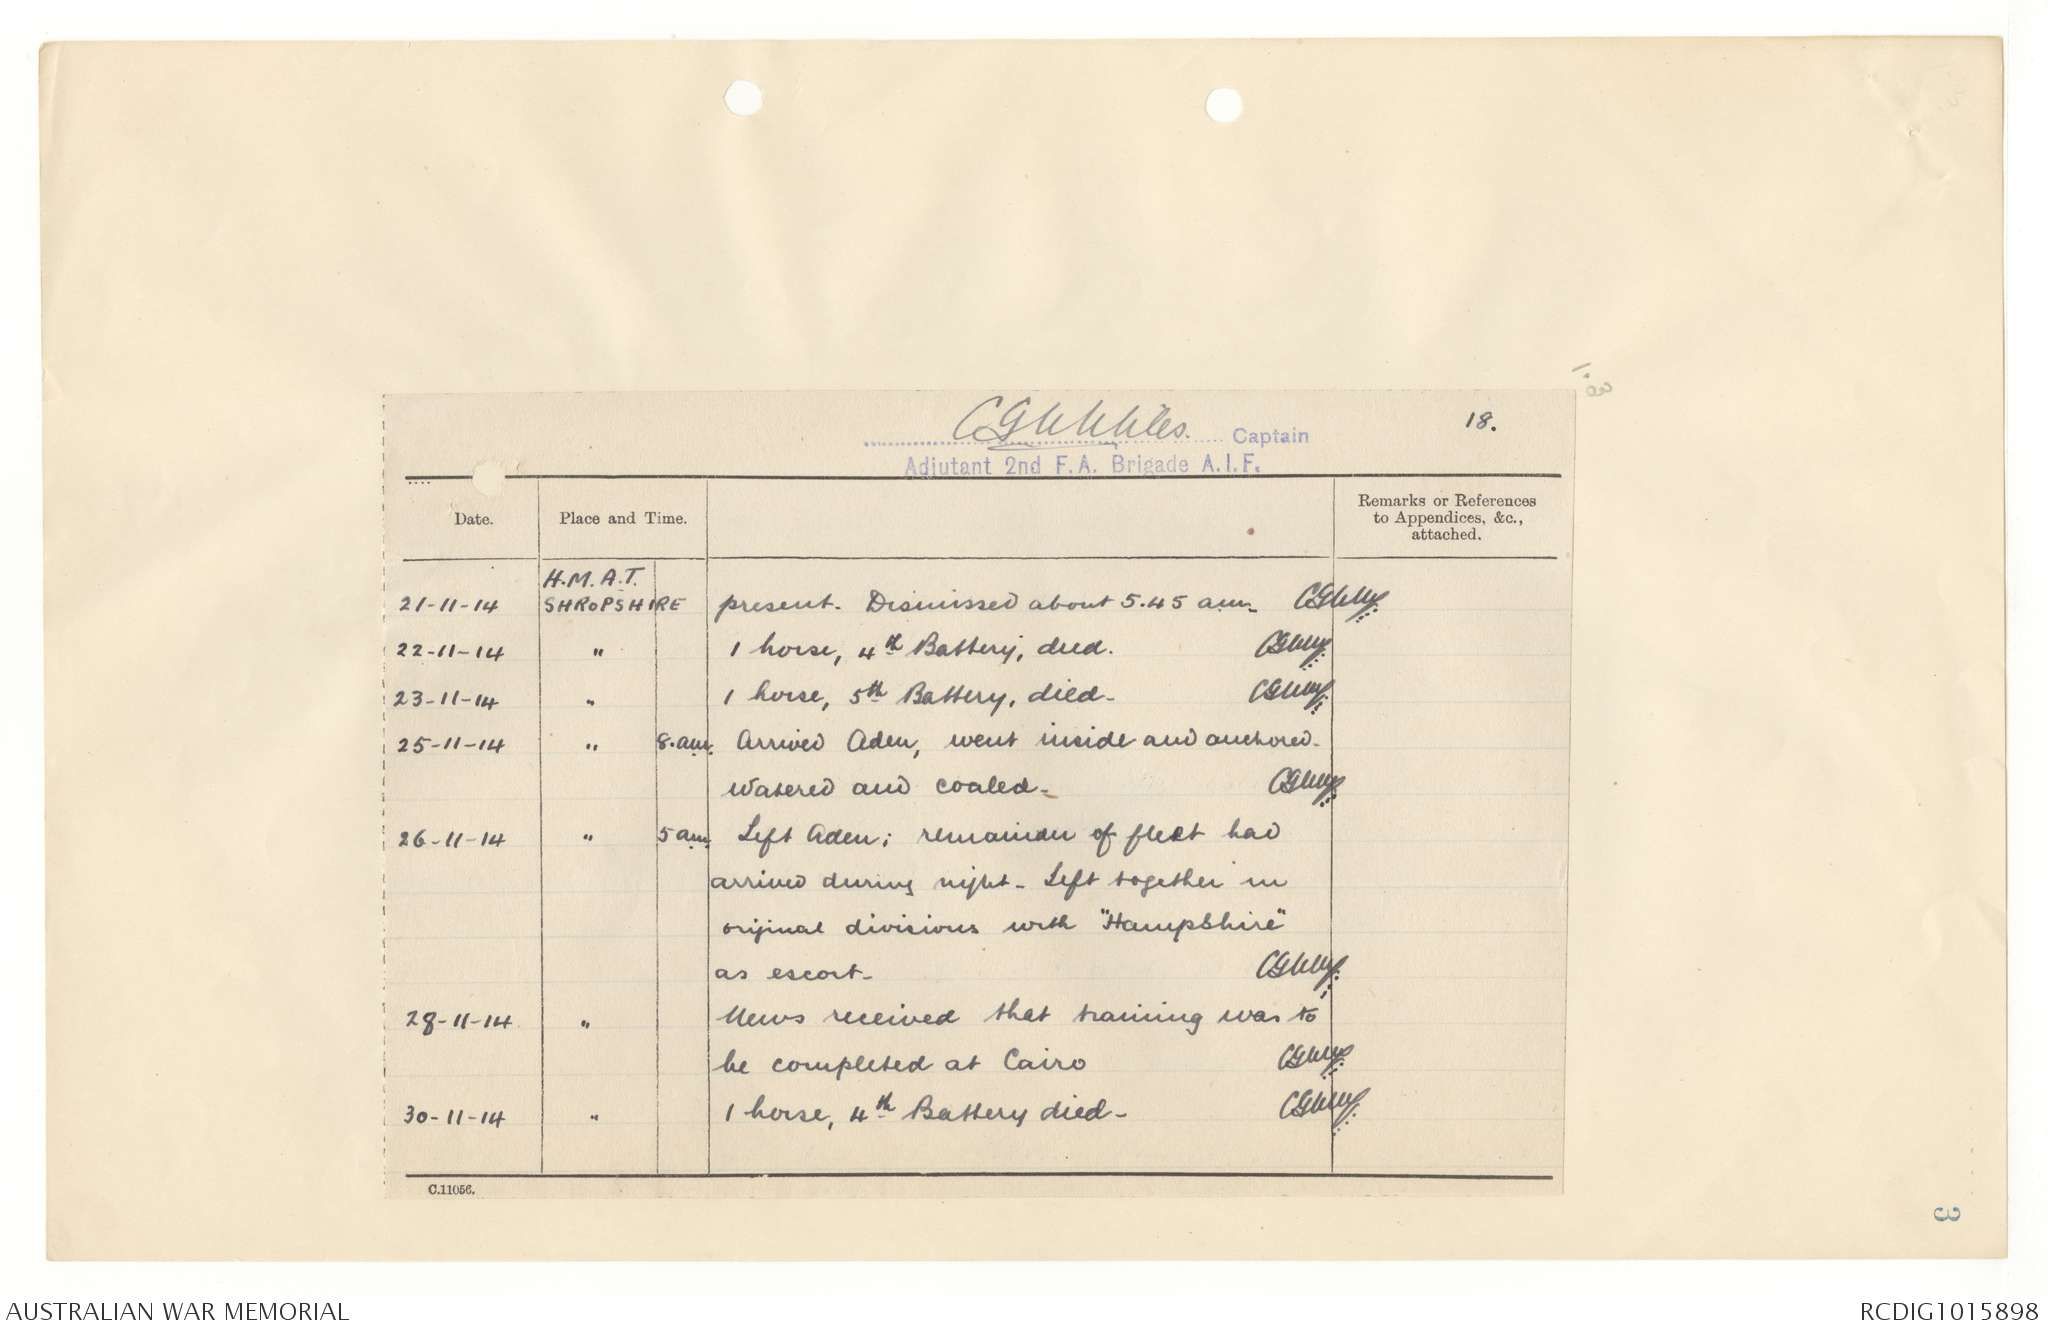 CGNMiles. Captain
18.
Adjutant 2nd F.A. Brigade A.I.F.
Date.
Place and Time.
Remarks or References
to Appendices, &c.,
attached.
H.M.A.T.
21-11-14 SHROPSHIRE present. Dismissed about 5.45 am.
22-11-14 " 1 horse, 4th Battery, died.
23-11-14 " 1 horse, 5th Battery, died.
25-11-14 " 8.am. Arrived Aden, went inside and anchored.
Watered and coaled.
26-11-14 " 5 am. Left Aden; remainder of fleet had
arrived during night. Left together in
original divisions with "Hampshire"
as escort.
28-11-14 " News received that training was to
be completed at Cairo
30-11-14 " 1 horse, 4th Battery died.
C.11056.
3
AUSTRALIAN WAR MEMORIAL
RCDIG1015898